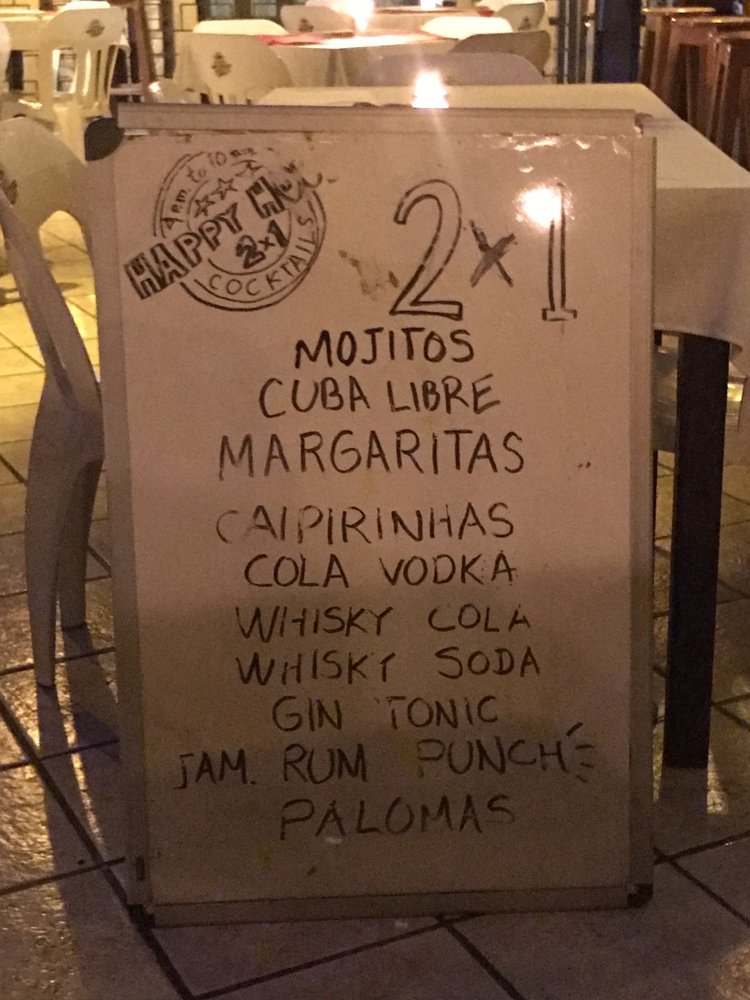 4 p.m. to 10 p.m.
HAPPY
2x1
COCKTAILS
2x1
MOJITOS
CUBA LIBRE
MARGARITAS
CAIPIRINHAS
COLA VODKA
WHISKY COLA
WHISKY SODA
GIN TONIC
JAM. RUM PUNCH
PALOMAS